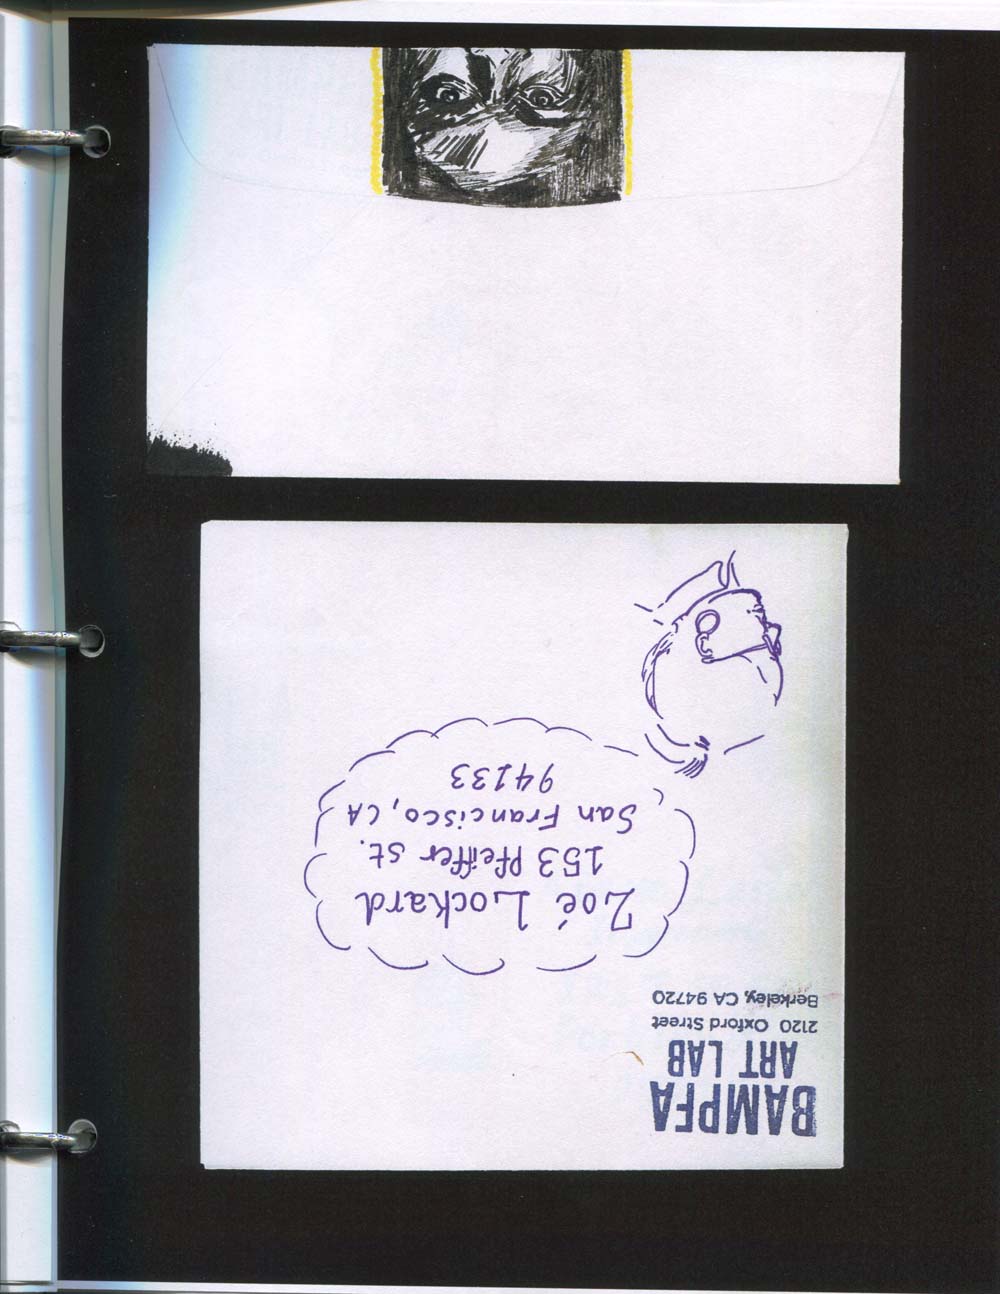 BAMPFA
ART LAB
2120 Oxford Street
Berkeley, CA 94720
Zoé Lockard
153 Pfeiffer st.
San Francisco, CA
94133